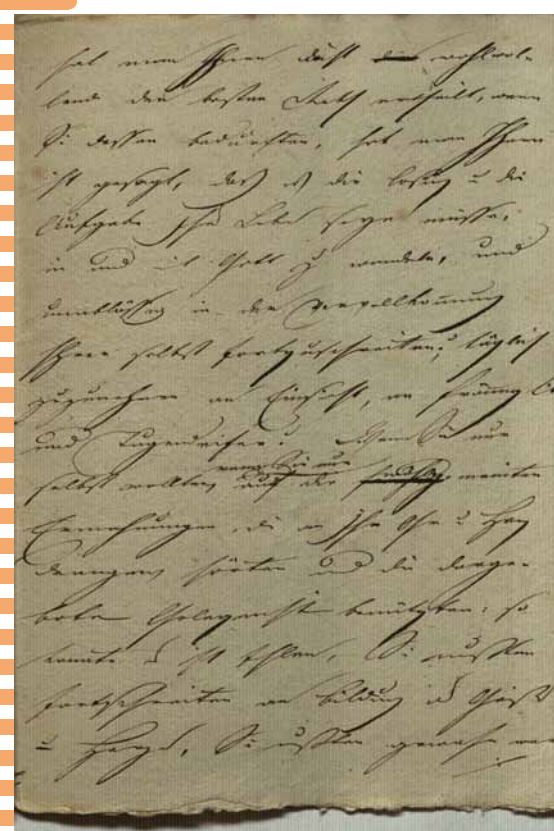 hat man Ihnen nicht wohlwol-
lend den besten Rath ertheilt, wenn
Sie dessen bedurften, hat man Ihnen
nicht gesagt, daß es die Losung u die
Aufgabe Ihres Lebens seyn müsse,
in und mit Gott zu wandeln, und
unablässig in der Vervollkommnung
Ihrer selbst fortzuschreiten, täglich
zuzunehmen an Einsicht, an
und Tugendeifer? Wenn Sie nur
selbst wollten, wenn Sie nur auf die meinten
Ermahnungen, die an Ihr Ohr u Herz
drangen, hörten und die darge-
botene Gelegenheit benützten: so
konnte es nicht fehlen, Sie mußten
fortschreiten an Bildung des Geistes
u Herzens, Sie mußten